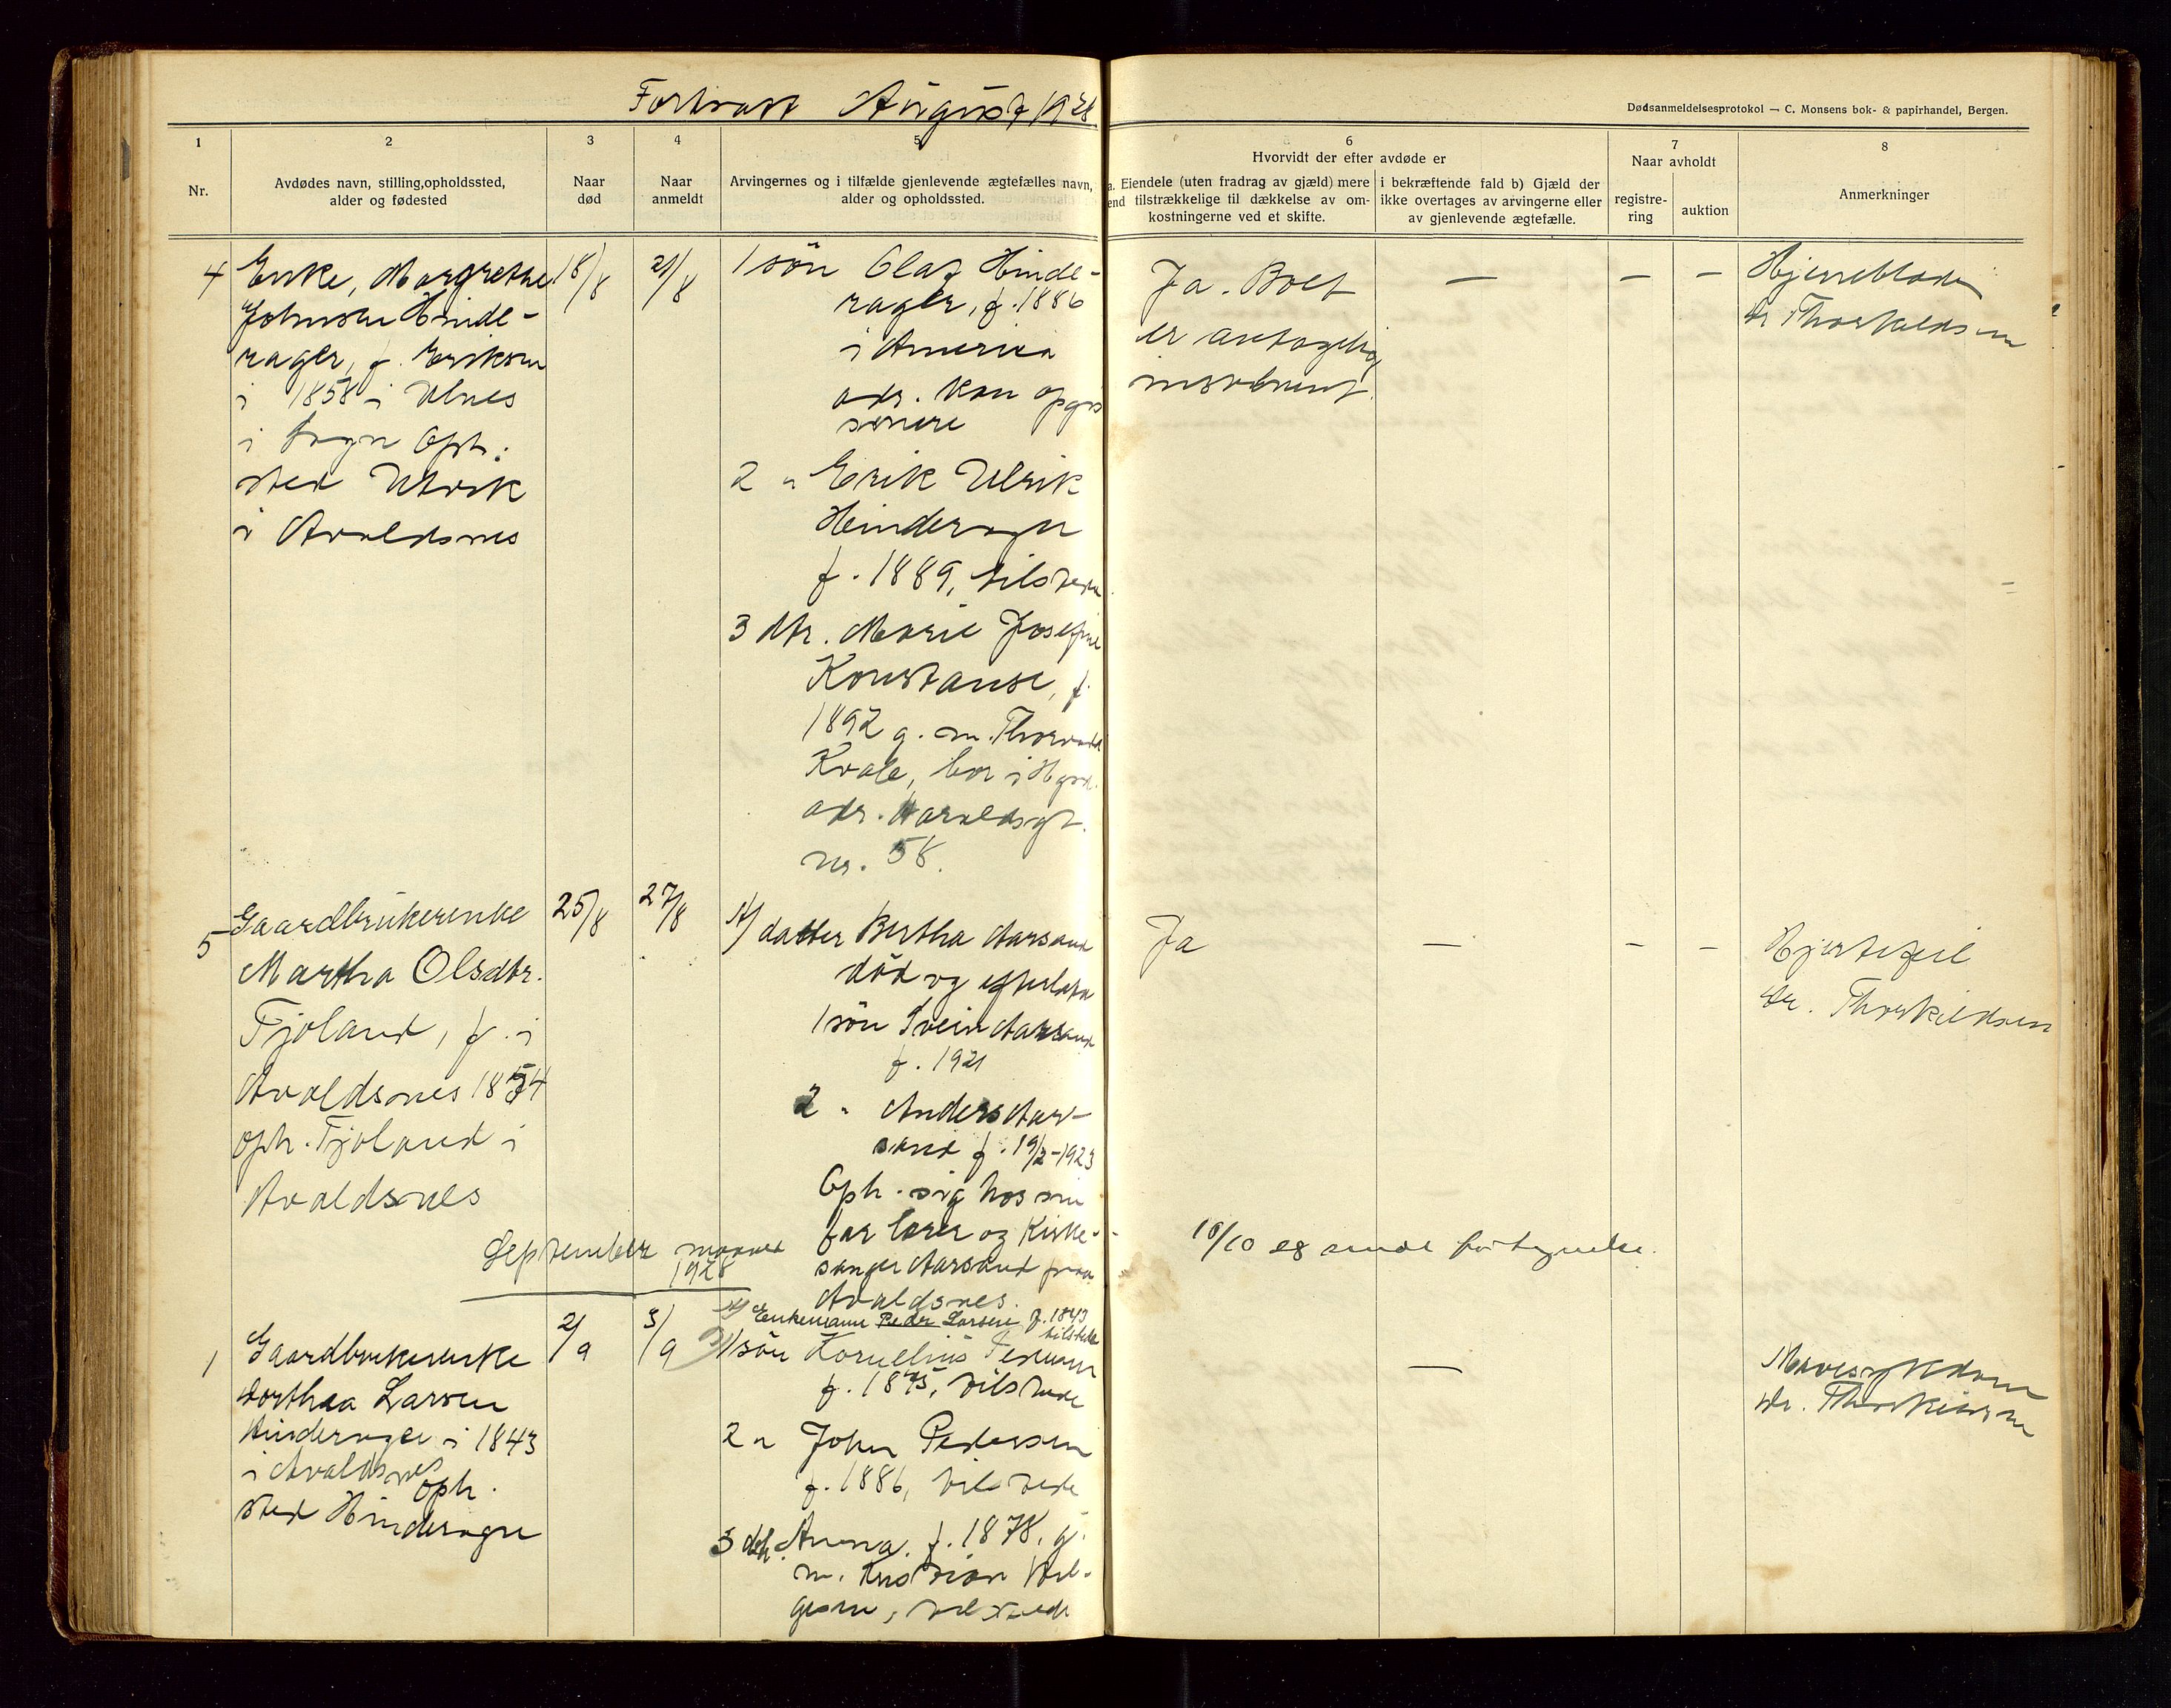 Fortsatt August 1928
Dødsanmeldelsesprotokol — C. Monsens bok- & papirhandel, Bergen.
1
Nr.
2
Avdødes navn, stilling,opholdssted,
alder og fødested
3
Naar
død
4
Naar
anmeldt
5
Arvingernes og i tilfælde gjenlevende ægtefælles navn,
alder og opholdssted.
6
Hvorvidt der efter avdøde er
a. Eiendele (uten fradrag av gjæld) mere
end tilstrækkelige til dækkelse av om-
kostningerne ved et skifte.
i bekræftende fald b) Gjæld der
ikke overtages av arvingerne eller
av gjenlevende ægtefælle.
7
Naar avholdt
registre-
ring
auktion
8
Anmerkninger
4
Enke, Margrethe
Johnsen Hinde-
rager, f. Eriksen
i 1858 i Ulnes
i Sogn Oph.
sted Utvik
i Avaldsnes
18/8
21/8
1 søn Olaf Hinde-
rager, f. 1886
i America
adr. kan opgis
senere
2 " Erik Ulrik
Hinderager
f. 1889, tilstede
3 dtr. Marie Josefine
Konstanse, f.
1892 g. m. Thorvald
Kvale, bor i Hgsd.
adr. Haraldsgt.
nr. 58.
Ja. Boet
er antagelig
insolvent.
—
—
—
Hjerneblødn
Dr Thorkildsen
5
Gaardbrukerenke
Martha Olsdtr.
Fjoland, f. i
Avaldsnes 1854
oph. Fjoland i
Avaldsnes
25/8
27/8
1/ datter Bertha Aarsand
død og efterlater
1 søn Svein Aarsand
f. 1921
2 " Anders Aar-
sand f. 19/2-1923
Oph. sig hos sin
far lærer og Kirke-
sanger Aarsand paa
Avaldsnes.
Ja
—
—
—
Hjertefeil
dr. Thorkildsen
September maaned
1928
10/10 28 sendt fortegnelse.
1
Gaardbrukerenke
Dorthea Larsen
Hinderager i 1843
i Avaldsnes
oph.
sted Hinderager
2/9
3/9
Enkemann Peder Larsen f. 1843
tilstede
1 søn Kornelius Pedersen
f. 1875, tilstede
2 " John Pedersen
f. 1886, tilstede
3 dtr. Anna. f. 1878. g.
m. Kristian Hel-
gesen, tilstede
—
Mavesygdom
dr. Thorkildsen